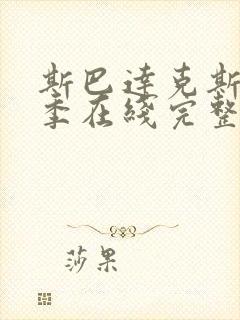 斯巴达克斯
季在线完整
莎果